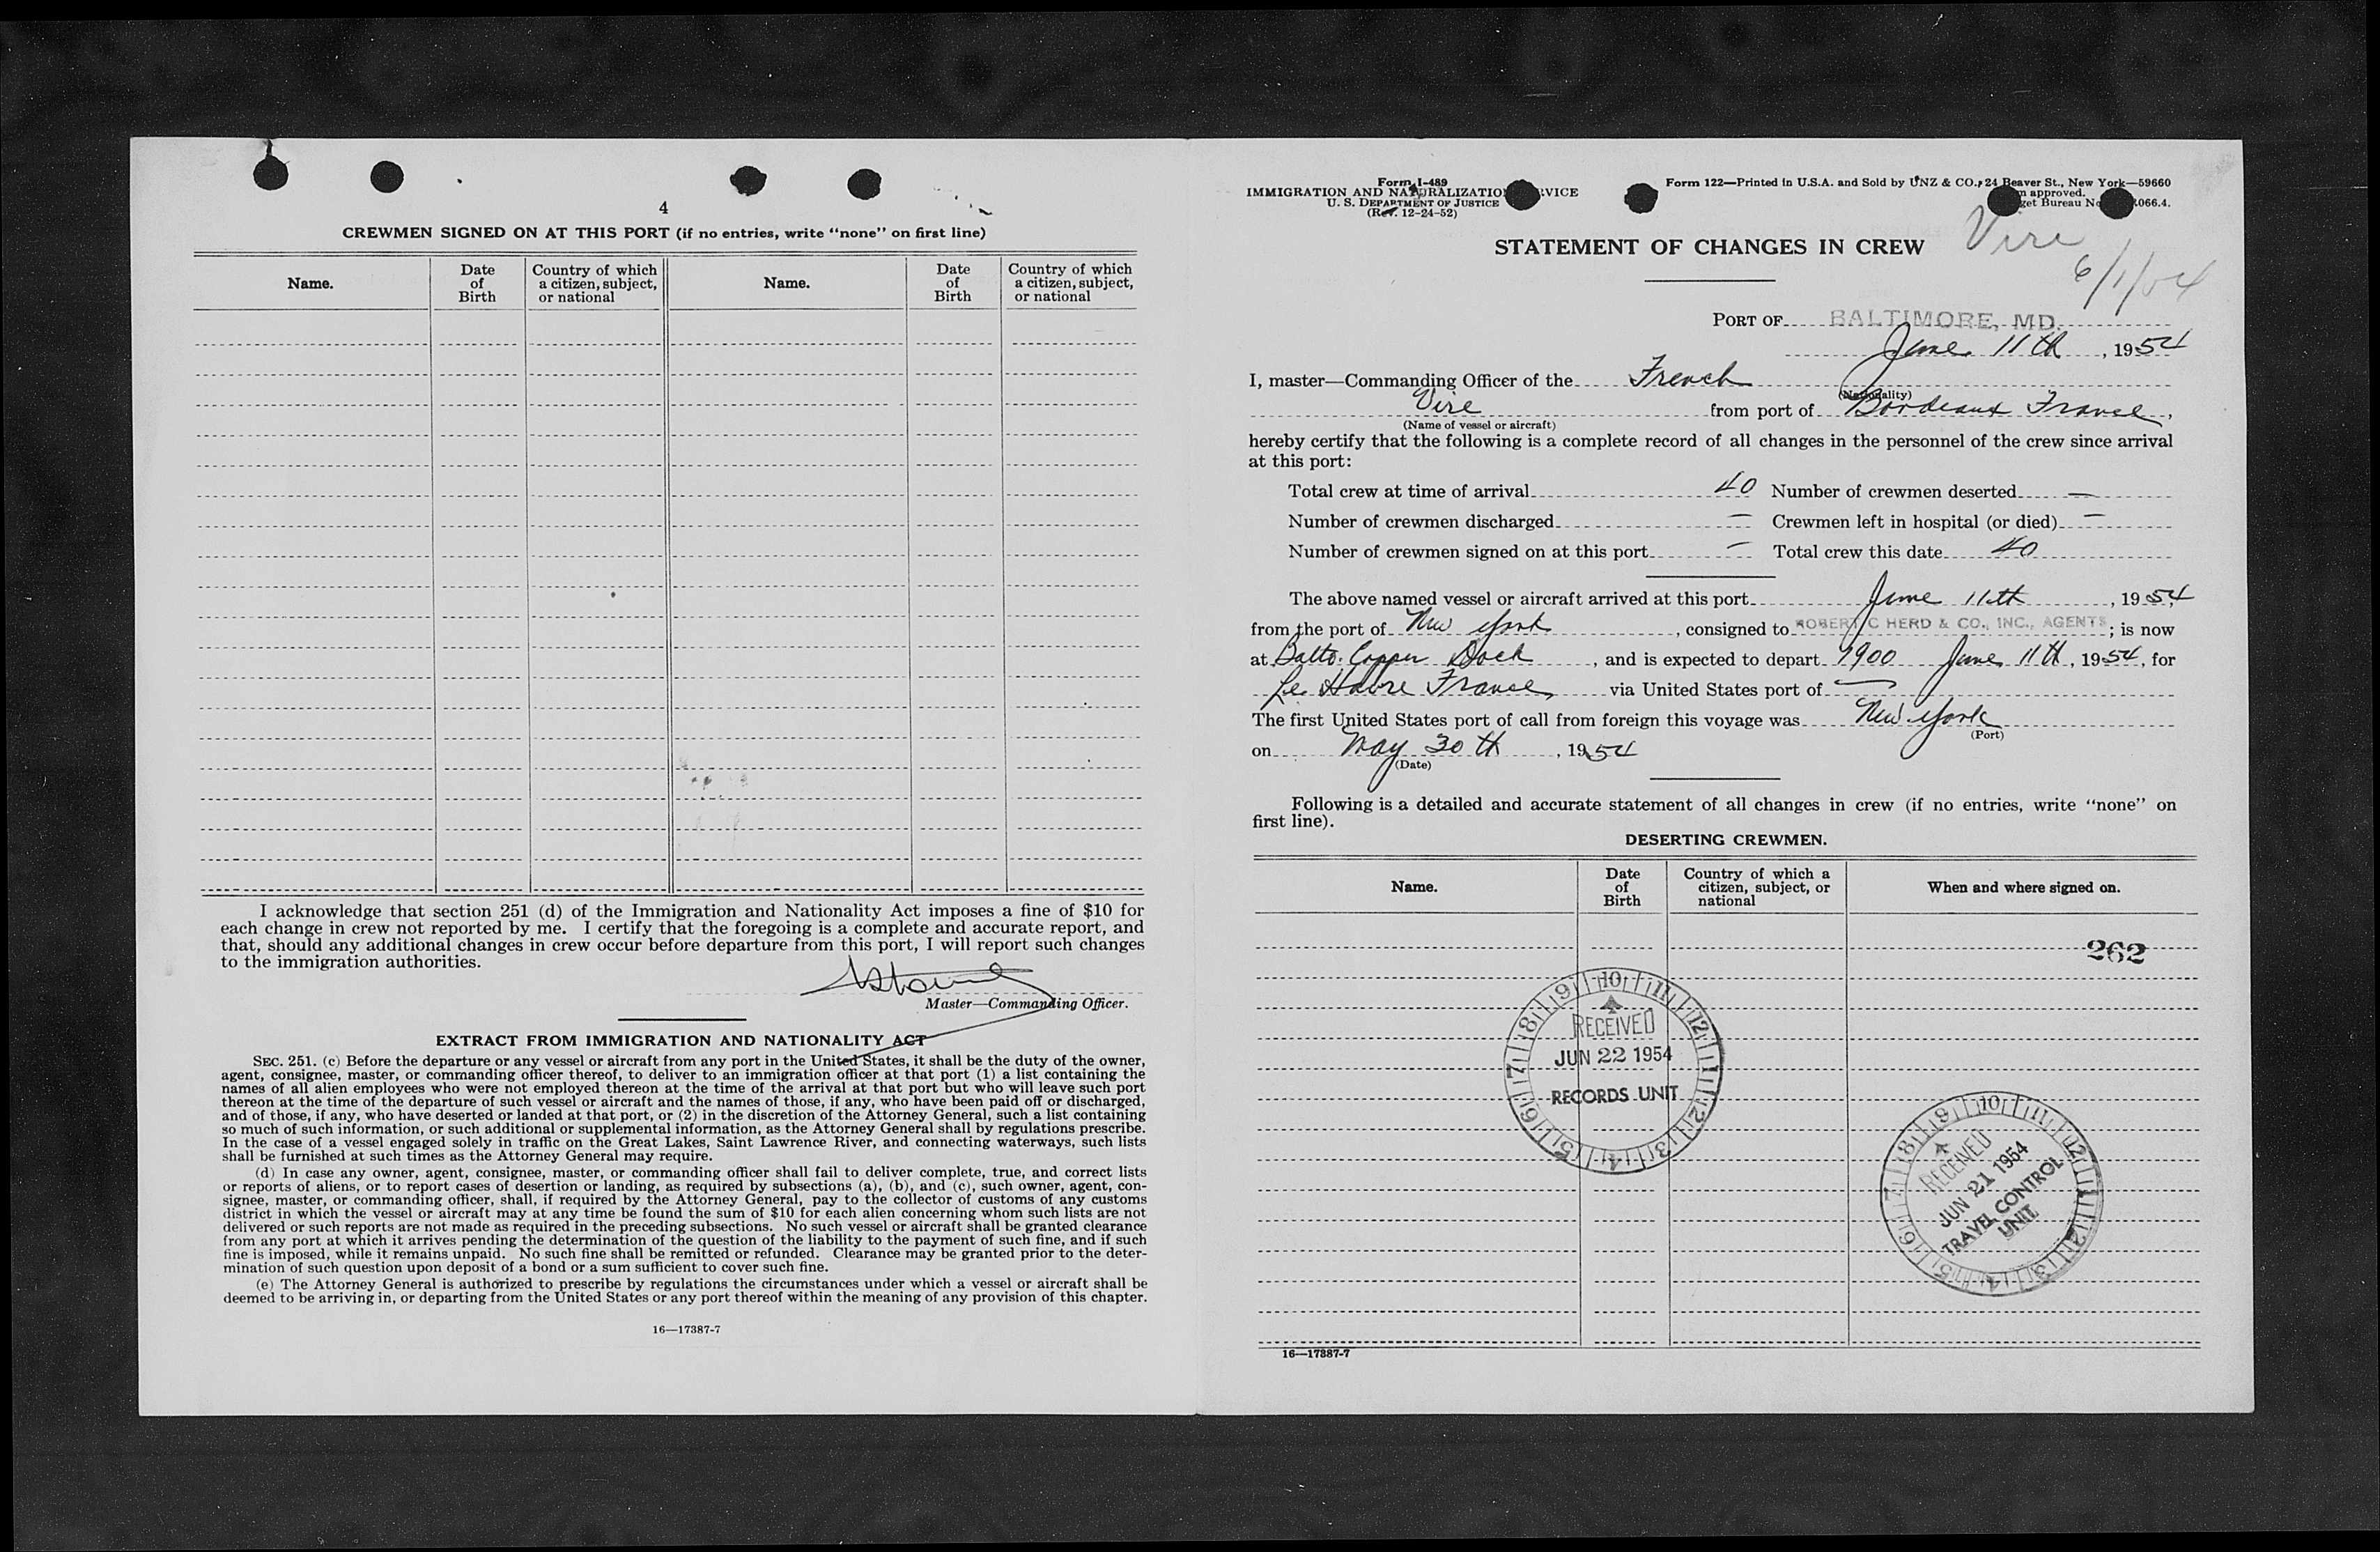 4
CREWMEN SIGNED ON AT THIS PORT (if no entries, write “none” on first line)
Name. Date of Birth Country of which a citizen, subject, or national Name. Date of Birth Country of which a citizen, subject, or national
I acknowledge that section 251 (d) of the Immigration and Nationality Act imposes a fine of $10 for
each change in crew not reported by me. I certify that the foregoing is a complete and accurate report, and
that, should any additional changes in crew occur before departure from this port, I will report such changes
to the immigration authorities.
Master—Commanding Officer.
EXTRACT FROM IMMIGRATION AND NATIONALITY ACT
SEC. 251. (c) Before the departure or any vessel or aircraft from any port in the United States, it shall be the duty of the owner,
agent, consignee, master, or commanding officer thereof, to deliver to an immigration officer at that port (1) a list containing the
names of all alien employees who were not employed thereon at the time of the arrival at that port but who will leave such port
thereon at the time of the departure of such vessel or aircraft and the names of those, if any, who have been paid off or discharged,
and of those, if any, who have deserted or landed at that port, or (2) in the discretion of the Attorney General, such a list containing
so much of such information, or such additional or supplemental information, as the Attorney General shall by regulations prescribe.
In the case of a vessel engaged solely in traffic on the Great Lakes, Saint Lawrence River, and connecting waterways, such lists
shall be furnished at such times as the Attorney General may require.
(d) In case any owner, agent, consignee, master, or commanding officer shall fail to deliver complete, true, and correct lists
or reports of aliens, or to report cases of desertion or landing, as required by subsections (a), (b), and (c), such owner, agent, con-
signee, master, or commanding officer, shall, if required by the Attorney General, pay to the collector of customs of any customs
district in which the vessel or aircraft may at any time be found the sum of $10 for each alien concerning whom such lists are not
delivered or such reports are not made as required in the preceding subsections. No such vessel or aircraft shall be granted clearance
from any port at which it arrives pending the determination of the question of the liability to the payment of such fine, and if such
fine is imposed, while it remains unpaid. No such fine shall be remitted or refunded. Clearance may be granted prior to the deter-
mination of such question upon deposit of a bond or a sum sufficient to cover such fine.
(e) The Attorney General is authorized to prescribe by regulations the circumstances under which a vessel or aircraft shall be
deemed to be arriving in, or departing from the United States or any port thereof within the meaning of any provision of this chapter.
16—17387-7
Form I-489
IMMIGRATION AND NATURALIZATION SERVICE
U. S. DEPARTMENT OF JUSTICE
(Rev. 12-24-52)
Form 122—Printed in U.S.A. and Sold by UNZ & CO., 24 Beaver St., New York—59660
approved.
066.4.
Vire
STATEMENT OF CHANGES IN CREW
PORT OF BALTIMORE, MD.
June 11th, 1954
I, master—Commanding Officer of the French
(Nationality)
Vire from port of Bordeaux France,
(Name of vessel or aircraft)
hereby certify that the following is a complete record of all changes in the personnel of the crew since arrival
at this port:
Total crew at time of arrival 40 Number of crewmen deserted —
Number of crewmen discharged — Crewmen left in hospital (or died) —
Number of crewmen signed on at this port — Total crew this date 40
The above named vessel or aircraft arrived at this port June 11th, 1954
from the port of New York, consigned to ROBERT C HERD & CO., INC., AGENTS; is now
at Balto. Copper Dock, and is expected to depart 1900 June 11th, 1954, for
Le Havre France via United States port of —
The first United States port of call from foreign this voyage was New York
(Port)
on May 30th, 1954
(Date)
Following is a detailed and accurate statement of all changes in crew (if no entries, write “none” on
first line).
DESERTING CREWMEN.
Name. Date of Birth Country of which a citizen, subject, or national When and where signed on.
262
RECEIVED
JUN 22 1954
RECORDS UNIT
RECEIVED
JUN 21 1954
TRAVEL CONTROL
UNIT
16—17387-7